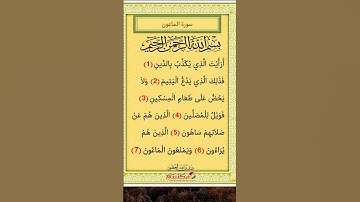 سورة الماعون
بسم الله الرحمن الرحيم
أَرَأَيْتَ الَّذِي يُكَذِّبُ بِالدِّينِ (1)
فَذَلِكَ الَّذِي يَدُعُّ الْيَتِيمَ (2) وَلَا
يَحُضُّ عَلَى طَعَامِ الْمِسْكِينِ (3)
فَوَيْلٌ لِلْمُصَلِّينَ (4) الَّذِينَ هُمْ عَنْ
صَلَاتِهِمْ سَاهُونَ (5) الَّذِينَ هُمْ
يُرَاءُونَ (6) وَيَمْنَعُونَ الْمَاعُونَ (7)